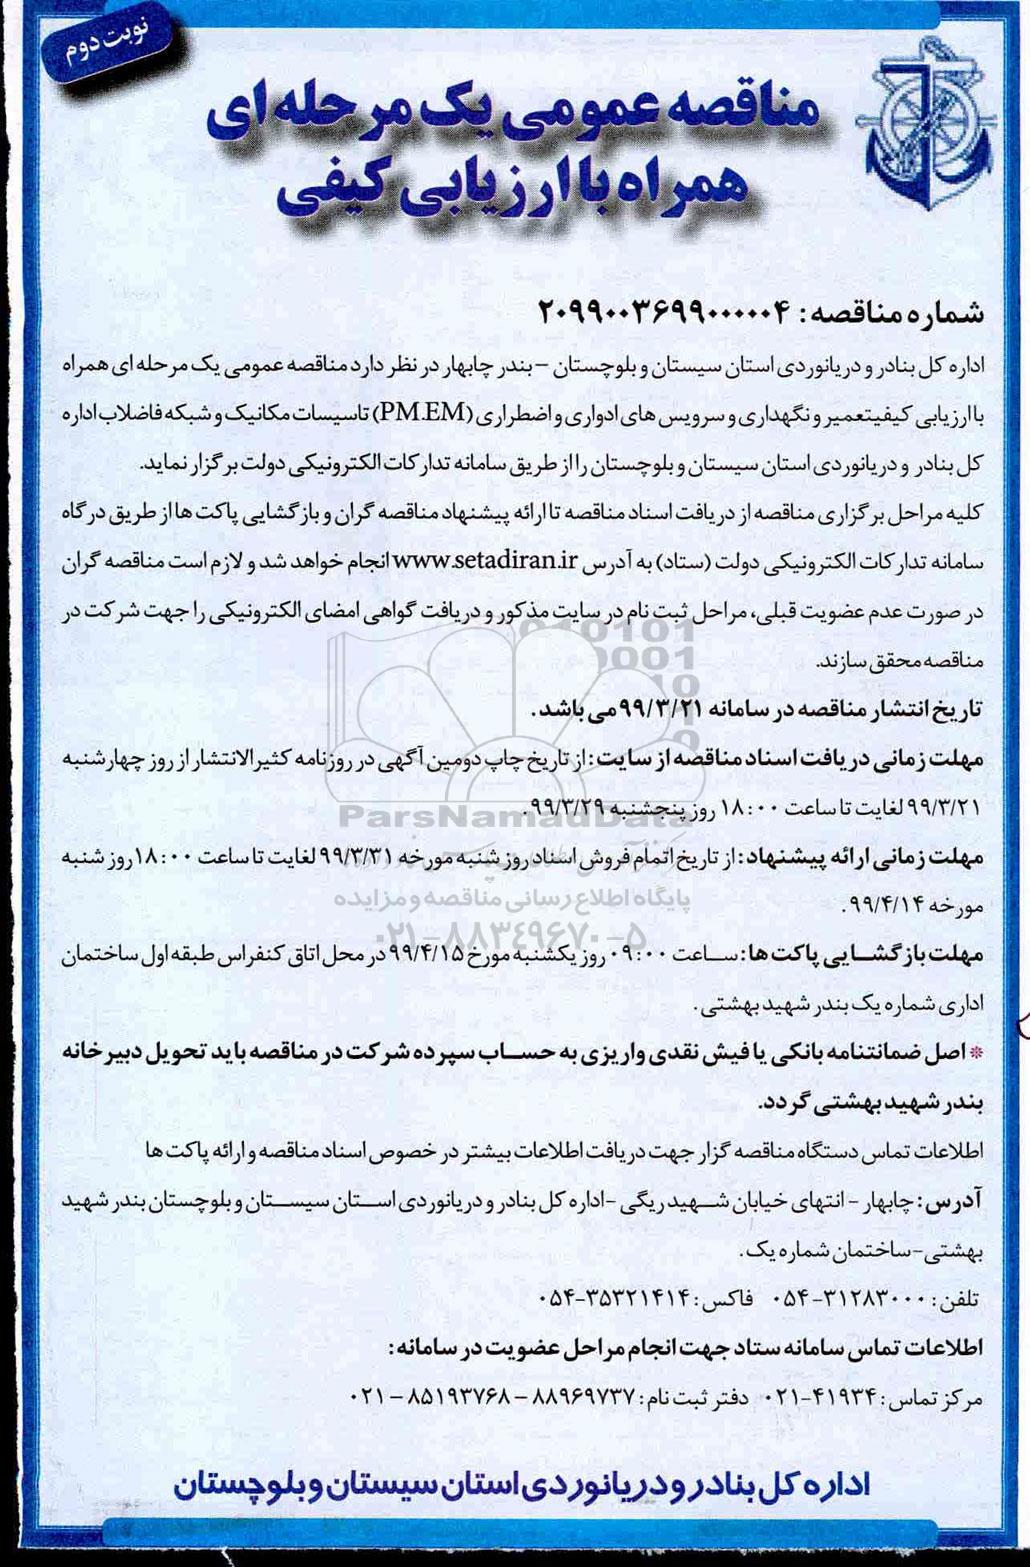 نوبت دوم
مناقصه عمومی یک مرحله ای
همراه با ارزیابی کیفی
شماره مناقصه: ۲۰۹۹۰۰۳۶۹۹۰۰۰۰۰۴
اداره کل بنادر و دریانوردی استان سیستان و بلوچستان – بندر چابهار در نظر دارد مناقصه عمومی یک مرحله ای همراه
با ارزیابی کیفیتعمیر و نگهداری و سرویس های ادواری و اضطراری (PM.EM) تاسیسات مکانیک و شبکه فاضلاب اداره
کل بنادر و دریانوردی استان سیستان و بلوچستان را از طریق سامانه تدارکات الکترونیکی دولت برگزار نماید.
کلیه مراحل برگزاری مناقصه از دریافت اسناد مناقصه تا ارائه پیشنهاد مناقصه گران و بازگشایی پاکت ها از طریق درگاه
سامانه تدارکات الکترونیکی دولت (ستاد) به آدرس www.setadiran.ir انجام خواهد شد و لازم است مناقصه گران
در صورت عدم عضویت قبلی، مراحل ثبت نام در سایت مذکور و دریافت گواهی امضای الکترونیکی را جهت شرکت در
مناقصه محقق سازند.
تاریخ انتشار مناقصه در سامانه ۹۹/۳/۲۱ می باشد.
مهلت زمانی دریافت اسناد مناقصه از سایت: از تاریخ چاپ دومین آگهی در روزنامه کثیرالانتشار از روز چهارشنبه
۹۹/۳/۲۱ لغایت تا ساعت ۱۸:۰۰ روز پنجشنبه ۹۹/۳/۲۹.
مهلت زمانی ارائه پیشنهاد: از تاریخ اتمام فروش اسناد روز شنبه مورخه ۹۹/۳/۳۱ لغایت تا ساعت ۱۸:۰۰ روز شنبه
مورخه ۹۹/۴/۱۴.
مهلت بازگشایی پاکت ها: ساعت ۰۹:۰۰ روز یکشنبه مورخ ۹۹/۴/۱۵ در محل اتاق کنفراس طبقه اول ساختمان
اداری شماره یک بندر شهید بهشتی.
* اصل ضمانتنامه بانکی یا فیش نقدی واریزی به حساب سپرده شرکت در مناقصه باید تحویل دبیرخانه
بندر شهید بهشتی گردد.
اطلاعات تماس دستگاه مناقصه گزار جهت دریافت اطلاعات بیشتر در خصوص اسناد مناقصه و ارائه پاکت ها
آدرس: چابهار - انتهای خیابان شهید ریگی -اداره کل بنادر و دریانوردی استان سیستان و بلوچستان بندر شهید
بهشتی-ساختمان شماره یک.
تلفن: ۳۱۲۸۳۰۰۰-۰۵۴ فاکس: ۳۵۳۲۱۴۱۴-۰۵۴
اطلاعات تماس سامانه ستاد جهت انجام مراحل عضویت در سامانه:
مرکز تماس: ۴۱۹۳۴-۰۲۱ دفتر ثبت نام: ۸۸۹۶۹۷۳۷ – ۸۵۱۹۳۷۶۸ – ۰۲۱
اداره کل بنادر و دریانوردی استان سیستان و بلوچستان
ParsNamadData
پایگاه اطلاع رسانی مناقصه و مزایده
۰۲۱-۸۸۳۴۹۶۷۰-۵